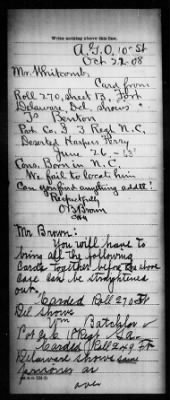 Write nothing above this line.
A.G.O. 10" St
Oct 22-08
Mr. Whitcomb,
Card from
Roll 270, sheet 13, Fort
Delaware Del. shows
Js Benton
Pvt. Co. I 3 Regt N.C.
Deserted Harpers Ferry
June 26 - 63
Cons. Born in N.C.
We fail to locate him
Can you find anything addtl?
Respectfully
Brown
Mr Brown:
You will have to
bring all the following
cards together before the above
case can be straightened
out.
Carded Roll 270 Ft
Del shows
Wm Batchlor
Pvt Co 1 Regt
Carded Roll 249 Ft
Delaware shows same
prisoner as
over